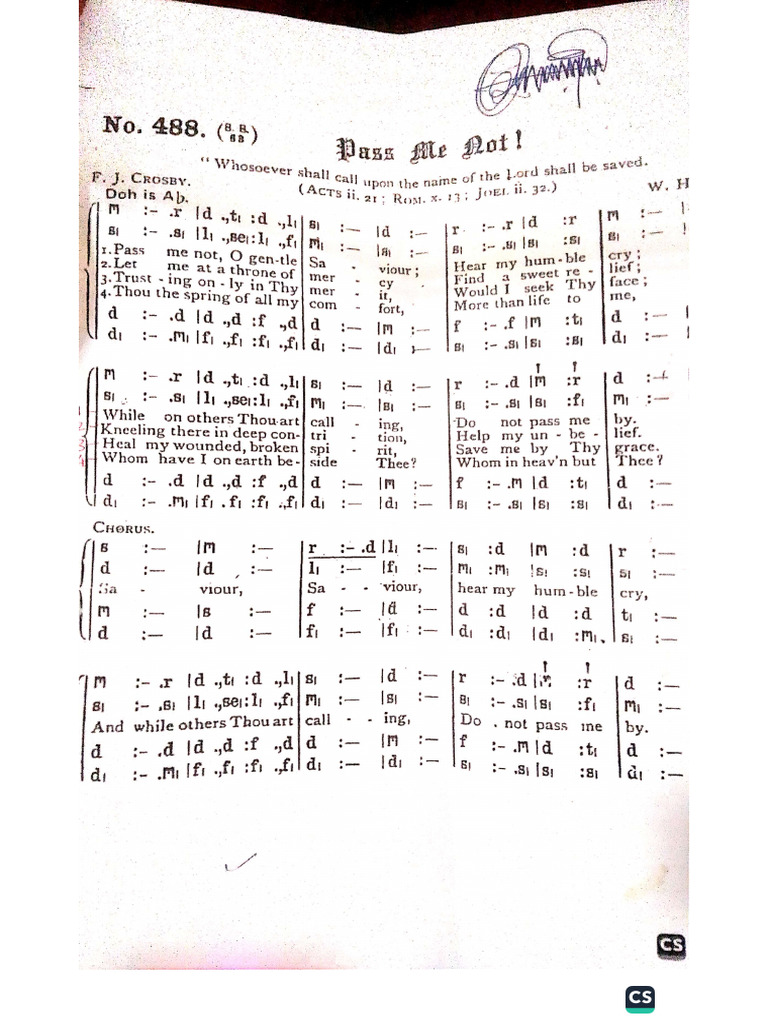 No. 488. (S. S. 63)
Pass Me Not!
"Whosoever shall call upon the name of the Lord shall be saved.
F. J. CROSBY. (ACTS ii. 21 ; ROM. x. 13 ; JOEL ii. 32.) W. H
Doh is A♭.
m :– .r |d .,t₁ :d .,l₁ | s₁ :— |d :— | r :– .r |d :r | m :— |
s₁ :– .s₁ |l₁ .,se₁:l₁ .,f₁ | m₁ :— |s₁ :— | s₁ :– .s₁ |s₁ :s₁ | s₁ :— |
1.Pass me not, O gen-tle Sa - viour ; Hear my hum-ble cry ;
2.Let me at a throne of mer - cy Find a sweet re - lief ;
3.Trust - ing on - ly in Thy mer - it, Would I seek Thy face ;
4.Thou the spring of all my com - fort, More than life to me,
d :– .d |d .,d :f .,d | d :— |m :— | f :– .f |m :t₁ | d :— |
d₁ :– .m₁ |f₁ .,f₁ :f₁ .,f₁ | d₁ :— |d₁ :— | s₁ :– .s₁ |s₁ :s₁ | d₁ :— |
m :– .r |d .,t₁ :d .,l₁ | s₁ :— |d :— | r :– .d |m :r | d :—
s₁ :– .s₁ |l₁ .,se₁:l₁ .,f₁ | m₁ :— |s₁ :— | s₁ :– .s₁ |s₁ :f₁ | m₁ :—
While on others Thou art call - ing, Do not pass me by.
Kneeling there in deep con- tri - tion, Help my un - be - lief.
Heal my wounded, broken spi - rit, Save me by Thy grace.
Whom have I on earth be- side Thee? Whom in heav'n but Thee?
d :– .d |d .,d :f .,d | d :— |m :— | f :– .m |d :t₁ | d :—
d₁ :– .m₁ |f₁ . f₁ :f₁ .,f₁ | d₁ :— |d₁ :— | s₁ :– .s₁ |s₁ :s₁ | d₁ :—
CHORUS.
s :— |m :— | r :– .d |l₁ :— | s₁ :d |m :d | r :—
d :— |d :— | l₁ :— |f₁ :— | m₁ :m₁ |s₁ :s₁ | s₁ :—
Sa - viour, Sa - - viour, hear my hum-ble cry,
m :— |s :— | f :— |d :— | d :d |d :d | t₁ :—
d :— |d :— | f₁ :— |f₁ :— | d₁ :d₁ |d₁ :m₁ | s₁ :—
m :– .r |d .,t₁ :d .,l₁ | s₁ :— |d :— | r :– .d |m :r | d :—
s₁ :– .s₁ |l₁ .,se₁:l₁ .,f₁ | m₁ :— |s₁ :— | s₁ :– .s₁ |s₁ :f₁ | m₁ :—
And while others Thou art call - - ing, Do . not pass me by.
d :– .d |d .,d :f .,d | d :— |m :— | f :– .m |d :t₁ | d :—
d₁ :– .m₁ |f₁ .,f₁ :f₁ .,f₁ | d₁ :— |d₁ :— | s₁ :– .s₁ |s₁ :s₁ | d₁ :—
CS
CS